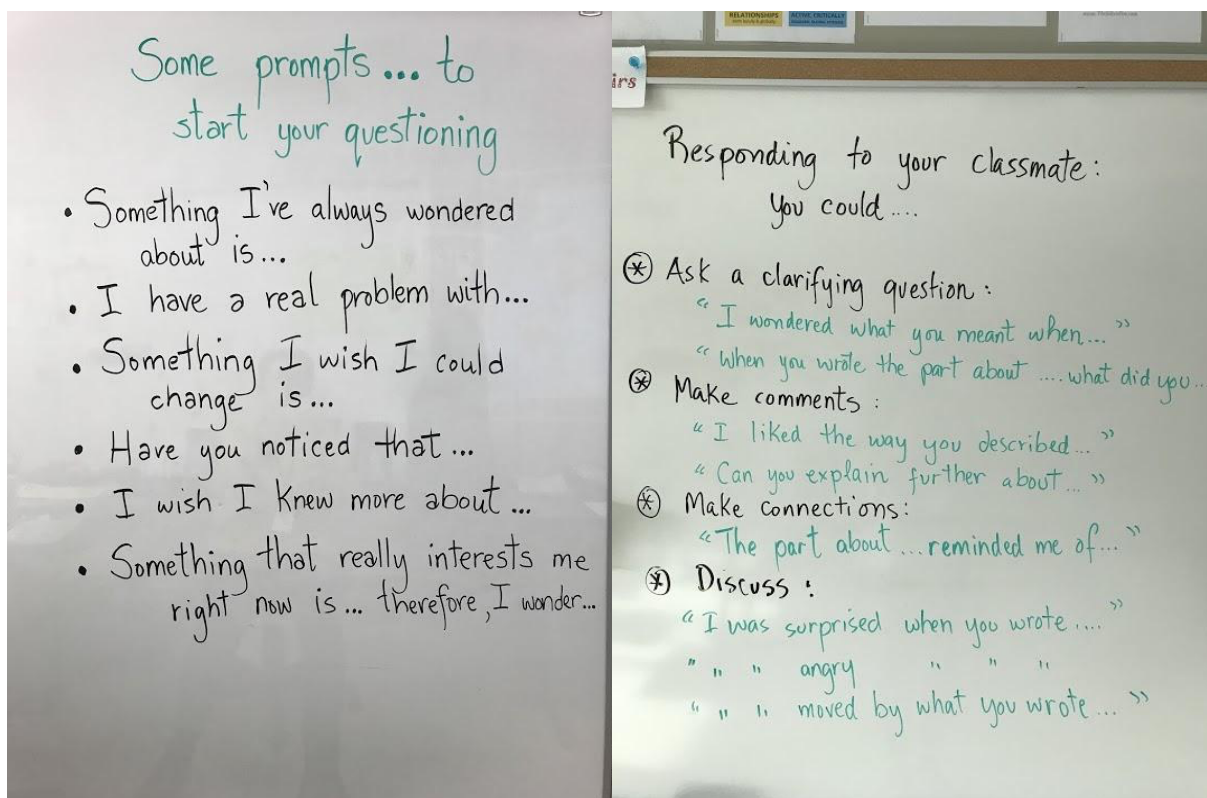 Some prompts... to
start your questioning
• Something I've always wondered
about is...
• I have a real problem with...
• Something I wish I could
change is...
• Have you noticed that...
• I wish I knew more about...
• Something that really interests me
right now is... therefore, I wonder...
RELATIONSHIPS
irs
Responding to your classmate:
You could....
* Ask a clarifying question:
"I wondered what you meant when..."
"When you wrote the part about ....what did you..
* Make comments:
"I liked the way you described..."
"Can you explain further about..."
* Make connections:
"The part about...reminded me of..."
* Discuss:
"I was surprised when you wrote...."
" " " angry " " "
" " " moved by what you wrote..."